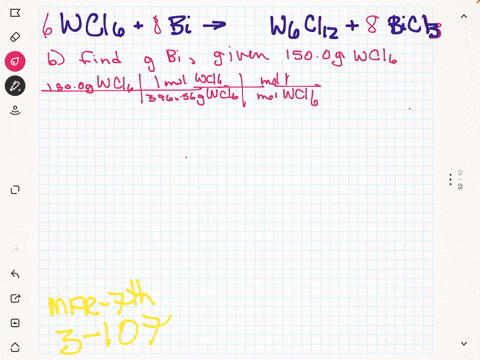 6 WCl6 + 8 Bi → W6Cl12 + 8 BiCl3
b) find g Bi, given 150.0g WCl6
150.0g WCl6 | 1 mol WCl6 | mol
396.56g WCl6 | mol WCl6
MFR-7th
3-107
52 / 52